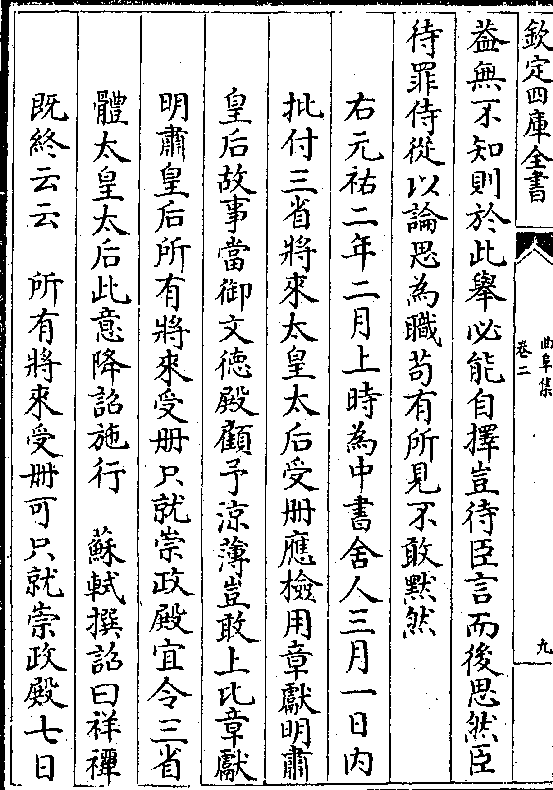 欽定四庫全書
曲阜集
卷二
九
益無不知則於此舉必能自擇豈待臣言而後思然臣
待罪侍從以論思為職苟有所見不敢默然
右元祐二年二月上時為中書舍人三月一日內
批付三省將來太皇太后受册應檢用章獻明肅
皇后故事當御文德殿顧予涼薄豈敢上比章獻
明肅皇后所有將來受册只就崇政殿宜令三省
體太皇太后此意降詔施行　蘇軾撰詔曰祥禫
既終云云　所有將來受册可只就崇政殿七日